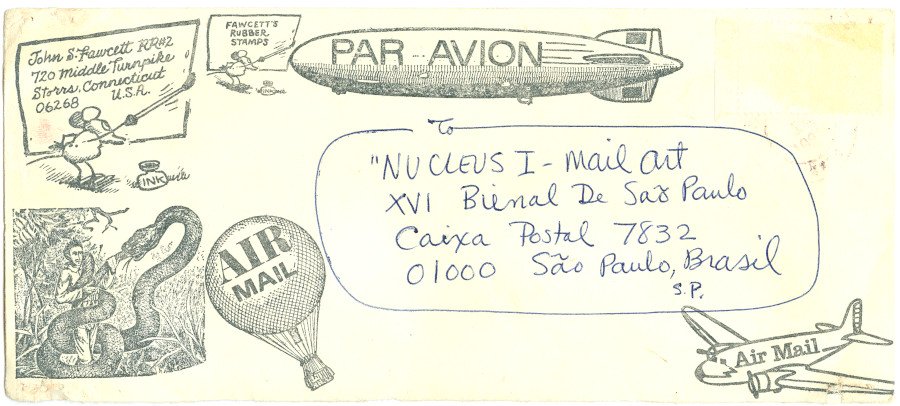 John S. Fawcett RR#2
720 Middle Turnpike
Storrs, Connecticut
06268 U.S.A.
INK
FAWCETT'S
RUBBER
STAMPS
INK
PAR AVION
To
"NUCLEUS I - Mail art
XVI Bienal De São Paulo
Caixa Postal 7832
01000 São Paulo, Brasil
S.P.
AIR
MAIL
Air Mail